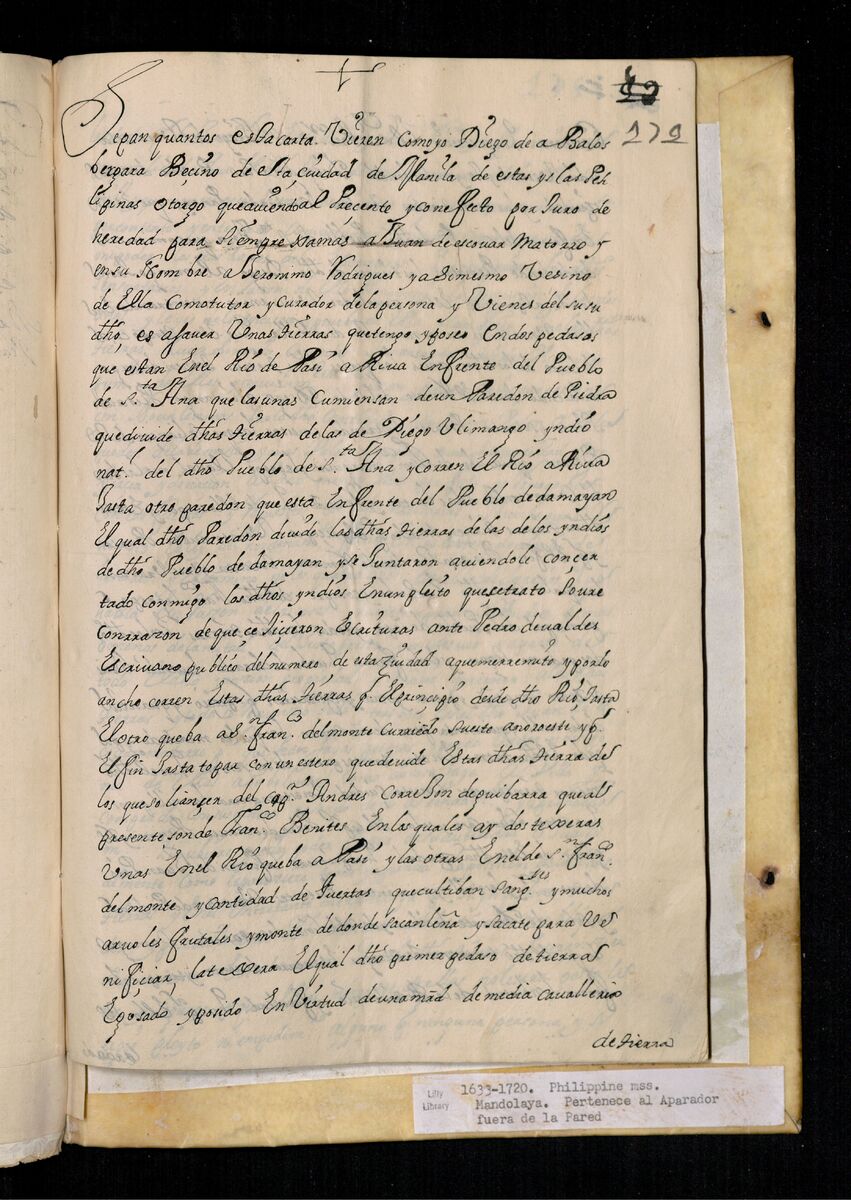 179
Sepan quantos esta carta Vieren Como yo Diego de a Balos
bergara Becino de esta Ciudad de Manila de estas yslas Phi
lipinas otorgo que avendo al Precente y con efecto por Juro de
heredad para Siempre xamas a Juan de escouar Matorro y
en su Nombre a Jeronimo Rodrigues y asimesmo Vesino
de Ella Como tutor y curador de la persona y Vienes del susu
dho, es asauer Unas tierras que tengo y poseo En dos pedasos
que estan En el Rio de Pasi a Riua En frente del Pueblo
de S.ta Ana que las unas Cumiensan de un Paredon de Piedra
que diuide dhas tierras de las de Diego Ulimango yndio
nat.l del dho Pueblo de S.ta Ana y corren El Rio a Riua
Hasta otro paredon que esta En frente del Pueblo de damayan
El qual dho Paredon diuide las dhas tierras de las de los yndios
de dho Pueblo de damayan y se Juntaron auiendole concer
tado conmigo los dhos yndios En un pleito que se trato Soure
Conrrazon de que ce hicieron Escrituras ante Pedro de ualdes
Escriuano publico del numero de esta ziudad a que me rremito y por lo
ancho corren Estas dhas tierras p.r El principio desde dho Rio Hasta
El otro que ba a S.n Fran.co del monte Corriendo Sueste a noroeste y p.r
El fin Hasta topar con un estero que deuide Estas dhas tierra de
los que solian ser del cap.n Andres Corre Son de puibarra que al
presente son de Fran.co Benites En las quales ay dos texeras
Unas En el Rio que ba a Pasi y las otras En el de S.n Fran.co
del monte y cantidad de Huertas que cultiban Sang.les y muchos
arvoles frutales y monte de donde sacan leña y sacate para Ve
nificiar la texera El qual dho primer pedaso de tierras
E gosado y posido En Virtud de una mrd de media cavalleria
de tierra
Lilly Library
1633-1720. Philippine mss.
Mandolaya. Pertenece al Aparador
fuera de la Pared